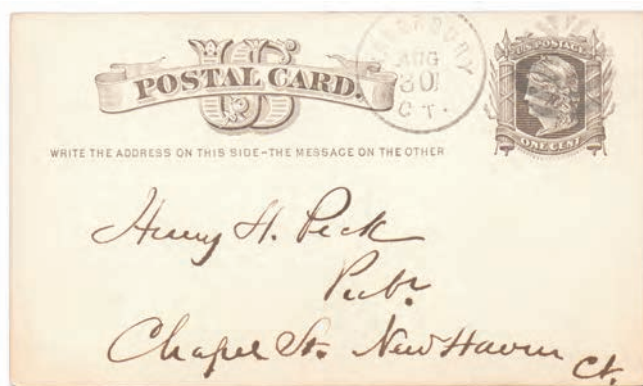 US
POSTAL CARD.
AUG
30
CT.
U.S. POSTAGE
ONE CENT
WRITE THE ADDRESS ON THIS SIDE-THE MESSAGE ON THE OTHER
Henry H. Peck
Pubr
Chapel St. New Haven
Ct.